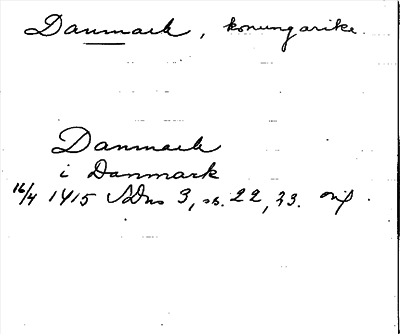 Danmark, konungarike.
Danmark
i Danmark
16/4 1415 SDns 3, s. 22, 23. orig.